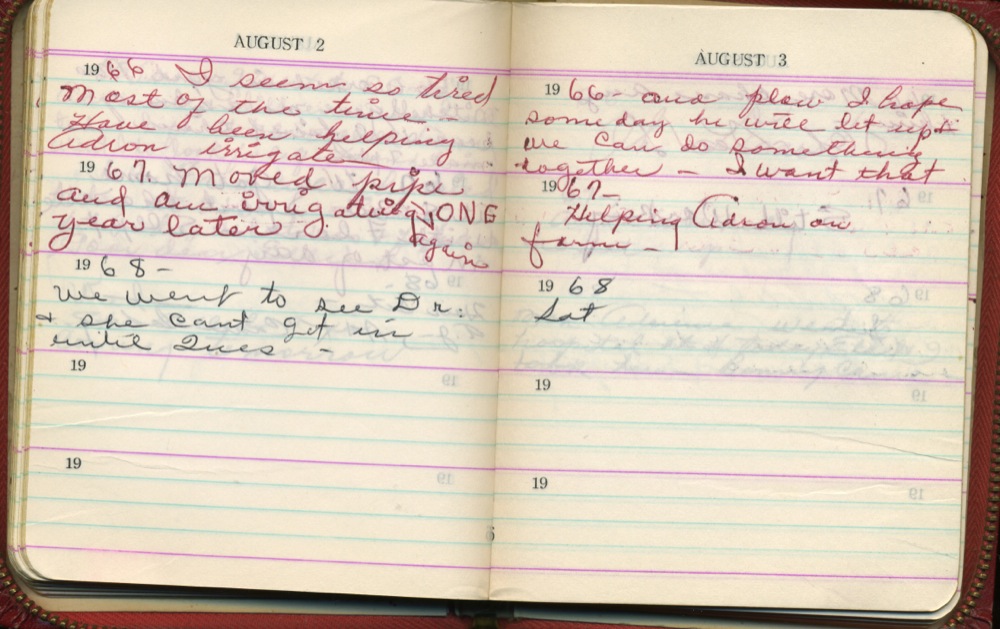 AUGUST 2
1966 I seem so tired
most of the time -
Have been helping
Adron irrigate
1967. Moved pipe
and am irrigating ONE
year later again
1968 -
We went to see Dr.
& she cant get in
until Tues -
19
19
AUGUST 3
1966 - and plow I hope
someday he will let up &
we can do something
together - I want that
1967 -
Helping Adron on
farm -
1968
Sat
19
19